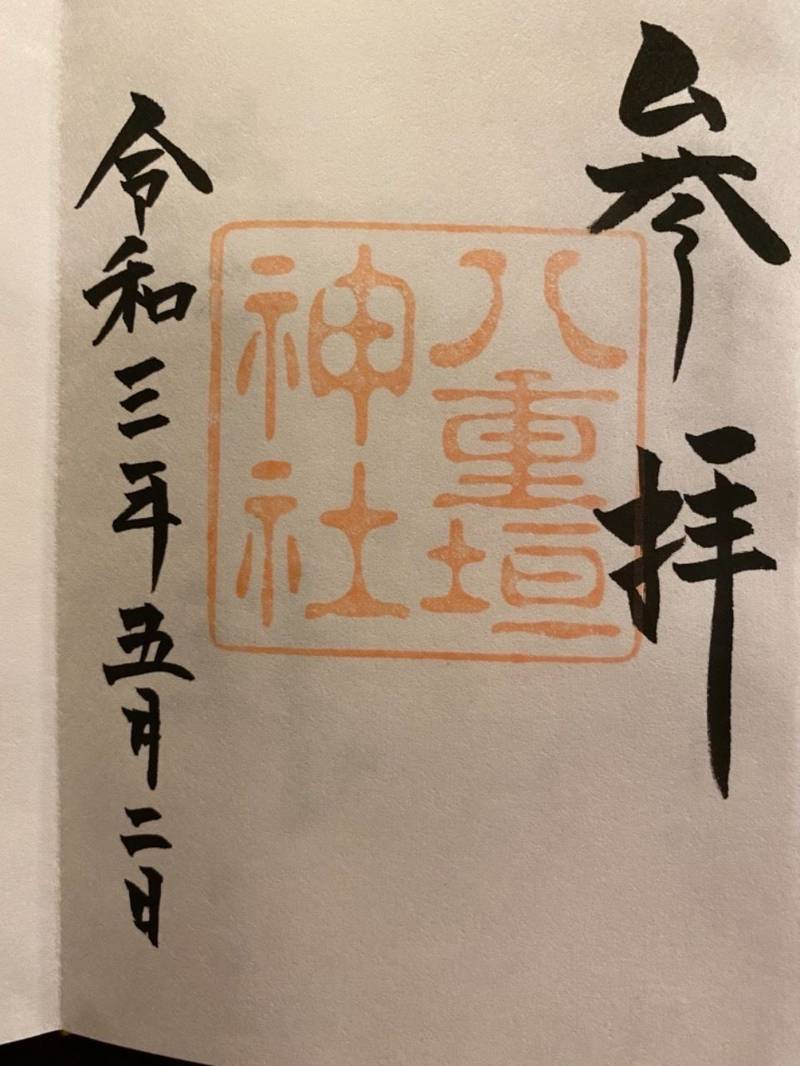 参拝
八重垣
神社
令和三年五月二日